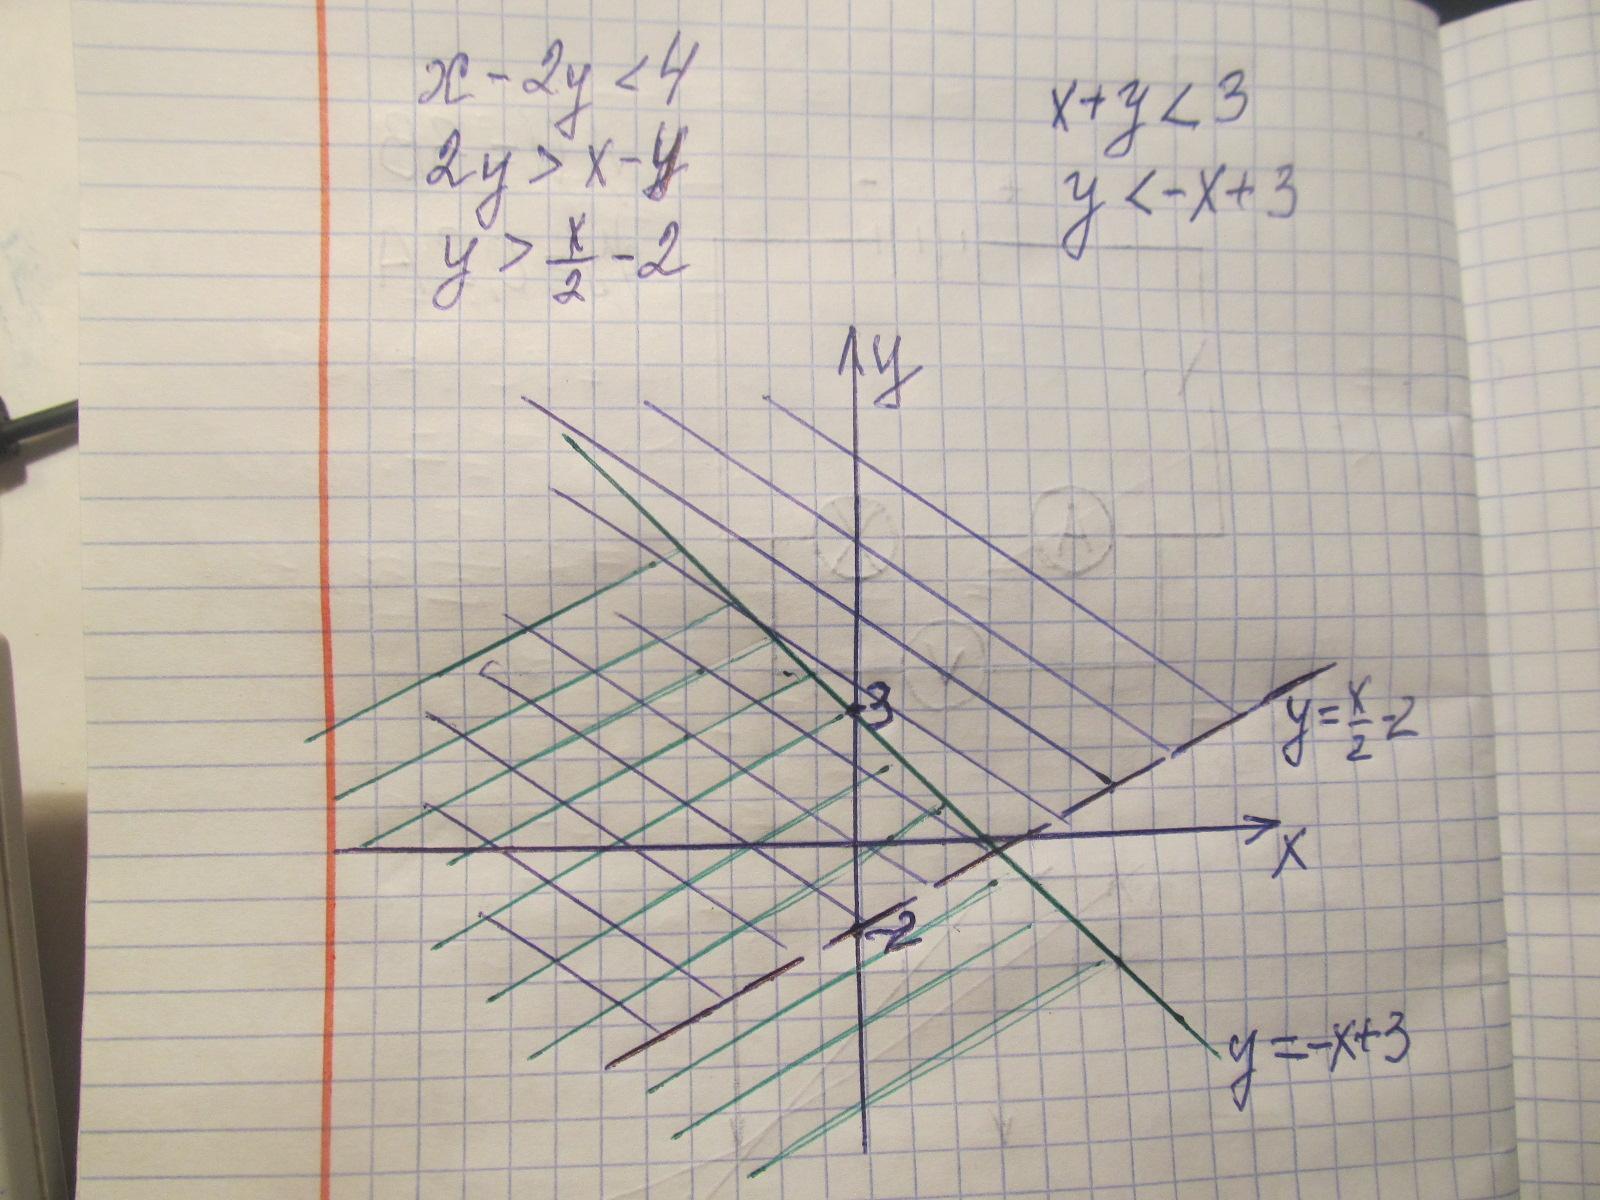 x - 2y < 4
2y > x - 4
y > x/2 - 2
x + y < 3
y < -x + 3
y
3
y = x/2 - 2
x
-2
y = -x + 3